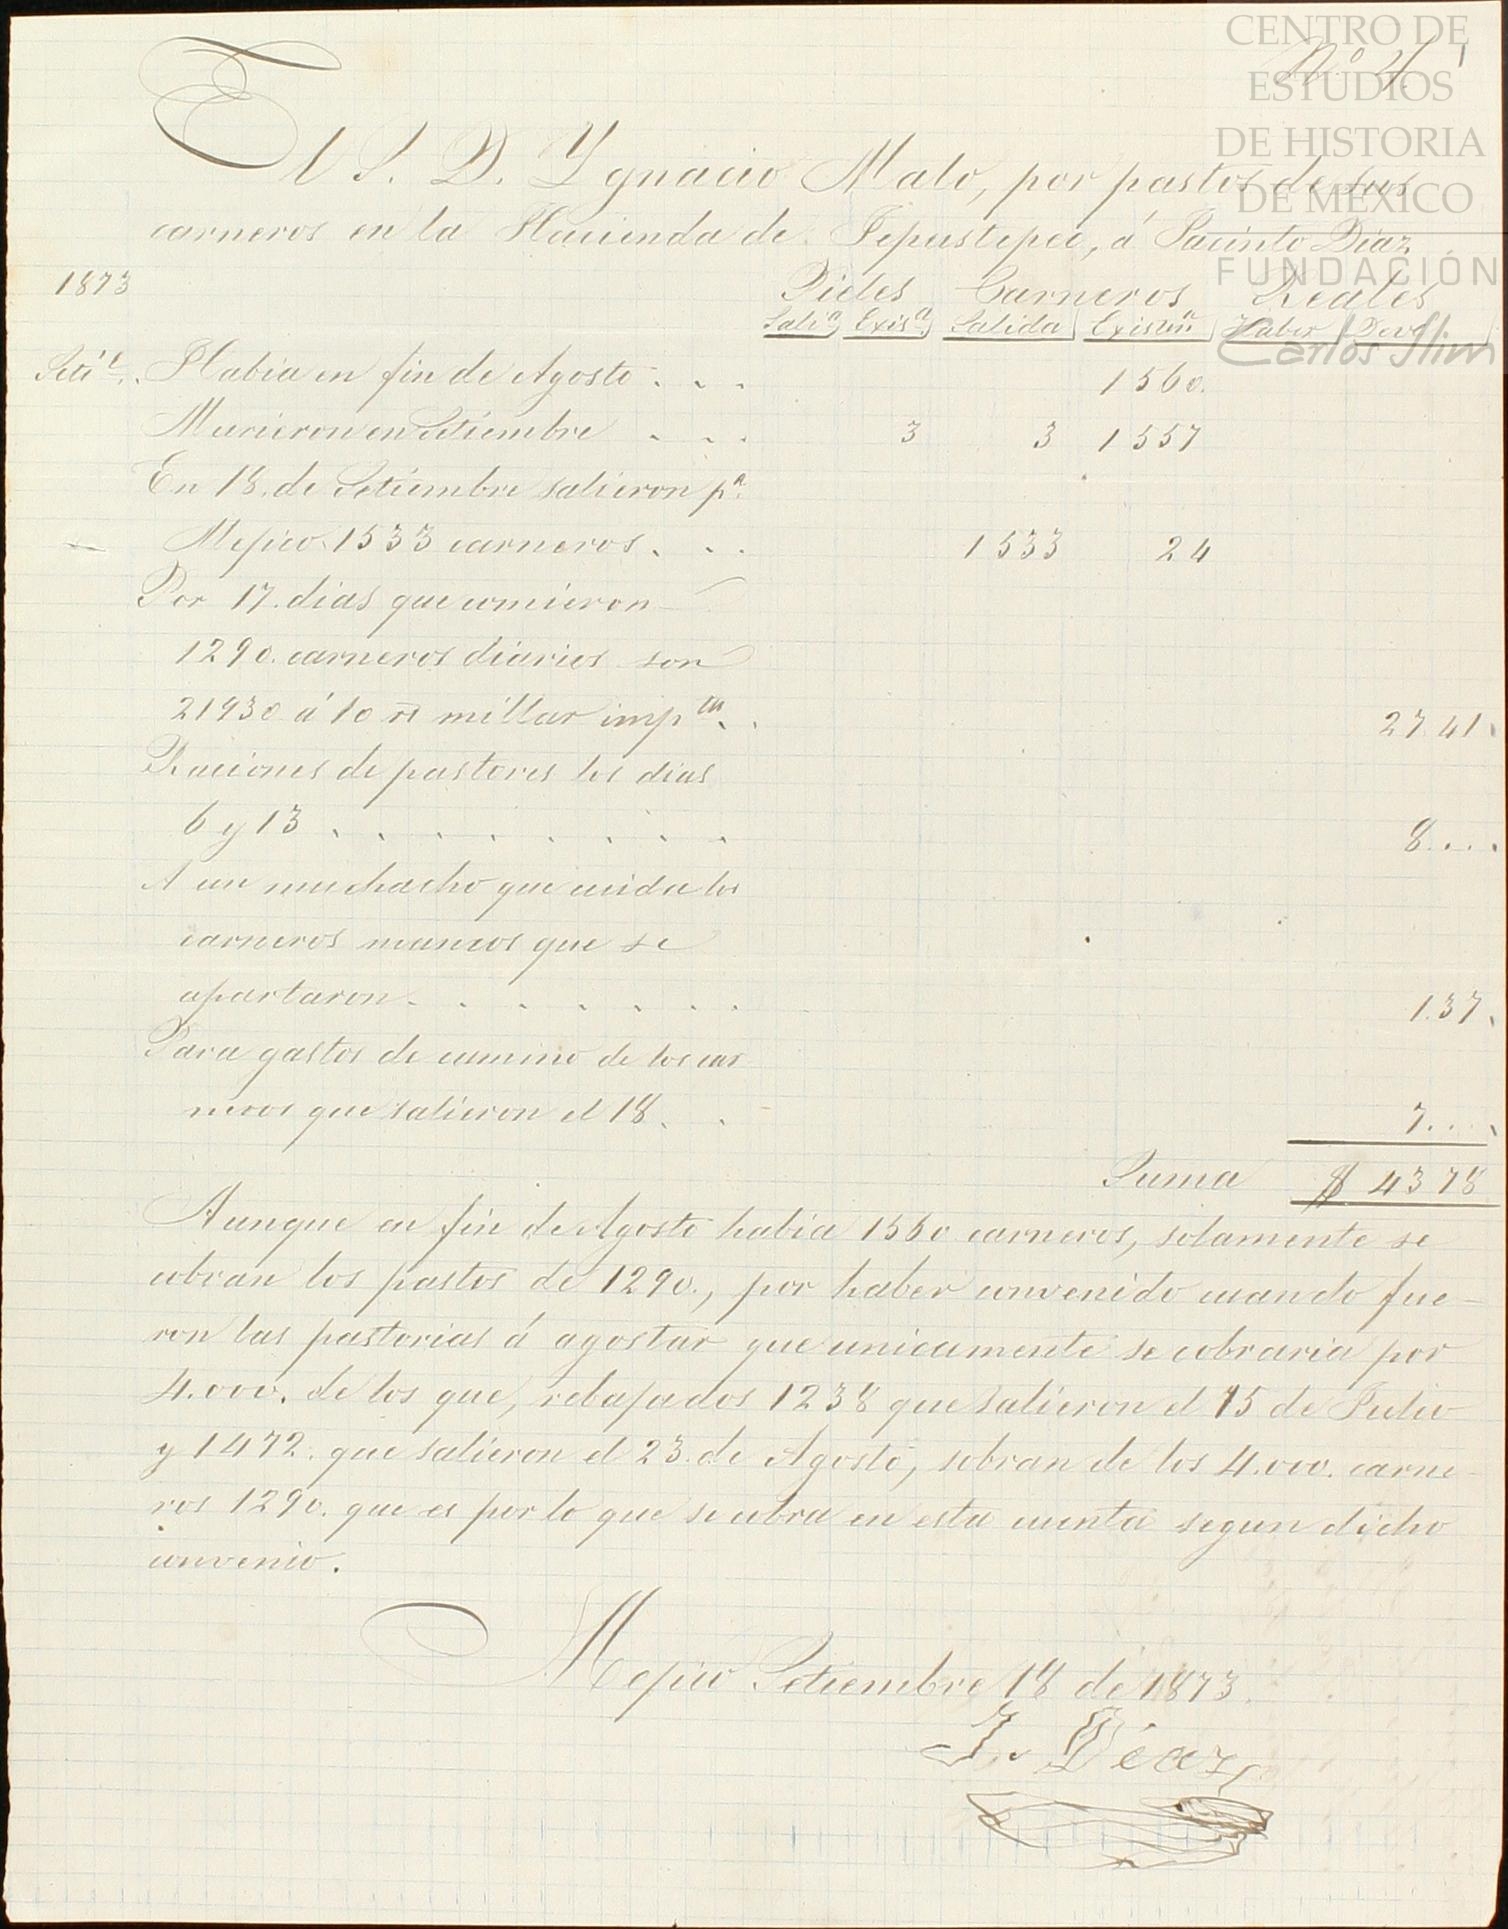 CENTRO DE
ESTUDIOS
DE HISTORIA
DE MÉXICO
FUNDACIÓN
Carlos Slim
Nº 4. 1
El S. D. Ygnacio Malo, por pastos de sus
carneros en la Hacienda de Tepustepec, á Jacinto Díaz
1873 Pieles Carneros Reales
Salida Exisª Salida Existenª Haber Deve
Setᵉ. Habia en fin de Agosto . . . 1560.
Murieron en Setiembre . . . 3 3 1557
En 18. de Setiembre salieron pª
Mejico 1533 carneros. . . 1533 24
Por 17. dias que comieron
1290. carneros diarios son
21930 á 10 rs millar imptⁿ. . 27 41.
Raciones de pastores los dias
6 y 13 . . . . . . . . 8. . . .
A un muchacho que cuida los
carneros mancos que se
apartaron. . . . . . . 1.37.
Para gastos de camino de los car
neros que salieron el 18. . 7. . . .
Suma $ 43 78
Aunque en fin de Agosto habia 1560 carneros, solamente se
cobran los pastos de 1290., por haber convenido cuando fue-
ron las pastorias á agostar que unicamente se cobraria por
4.000. de los que, rebajados 1238 que salieron el 15 de Julio
y 1472. que salieron el 23. de Agosto, sobran de los 4.000. carne-
ros 1290. que es por lo que se cobra en esta cuenta segun dicho
convenio.
Mejico Setiembre 18 de 1873.
J. Díaz